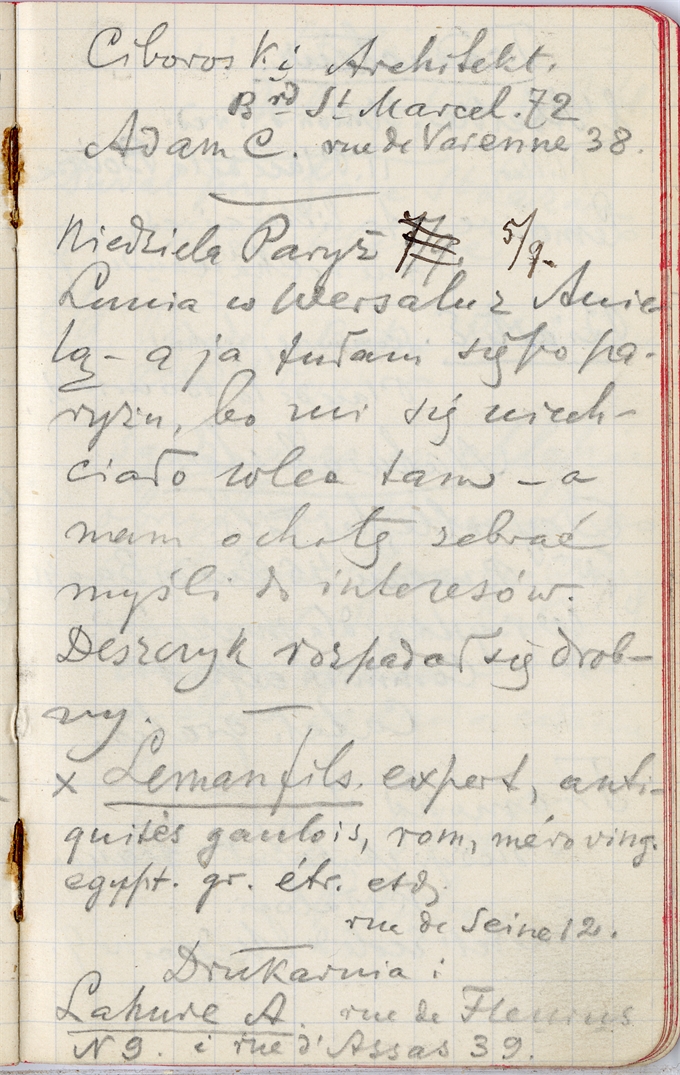 Ciboroski Architekt.
Brd St Marcel. 72
Adam C. rue de Varenne 38.
Niedziela Paryż 5/9.
Lunia w Wersalu z Anie-
lą - a ja tułam się po pa-
ryżu, bo mi się niech-
ciało wlec tam - a
mam ochotę zebrać
myśli do interesów.
Deszczyk rozpadał się drob-
ny. —
x Leman fils. expert, anti-
quités gaulois, rom, méroving.
egypt. gr. étr. etc
rue de Seine 12.
Drukarnia i
Lahure A. rue de Fleurus
N 9. i rue d'Assas 39.